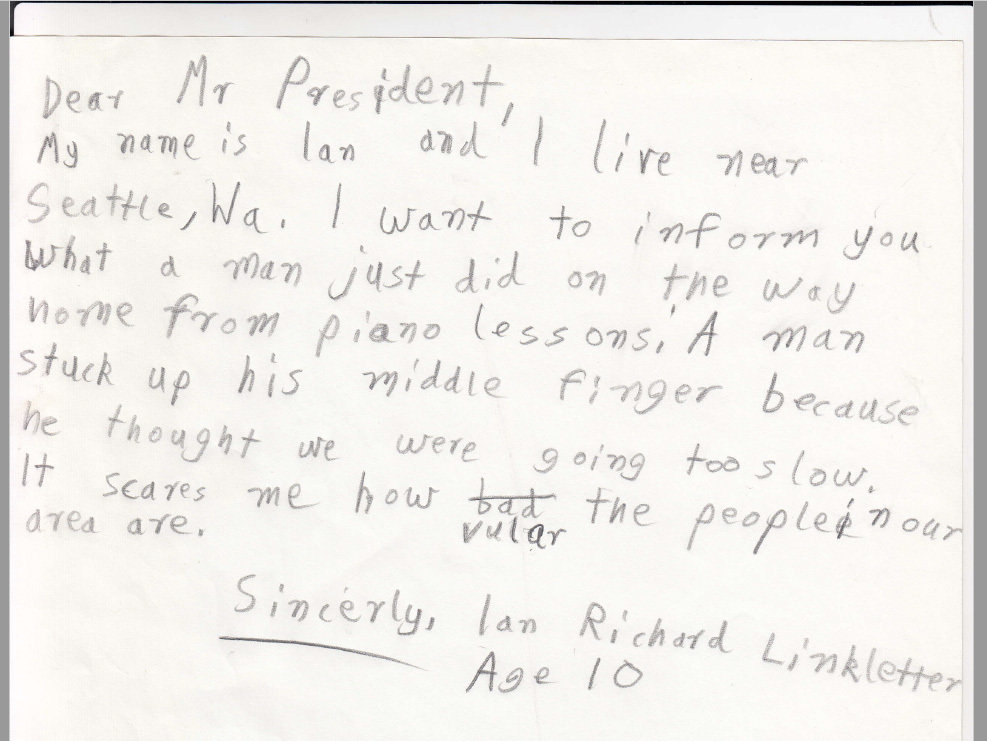 Dear Mr President,
My name is Ian and I live near
Seattle, Wa. I want to inform you
what a man just did on the way
home from piano lessons. A man
stuck up his middle finger because
he thought we were going too slow.
It scares me how bad the people in our
vular
area are.
Sincerly, Ian Richard Linkletter
Age 10